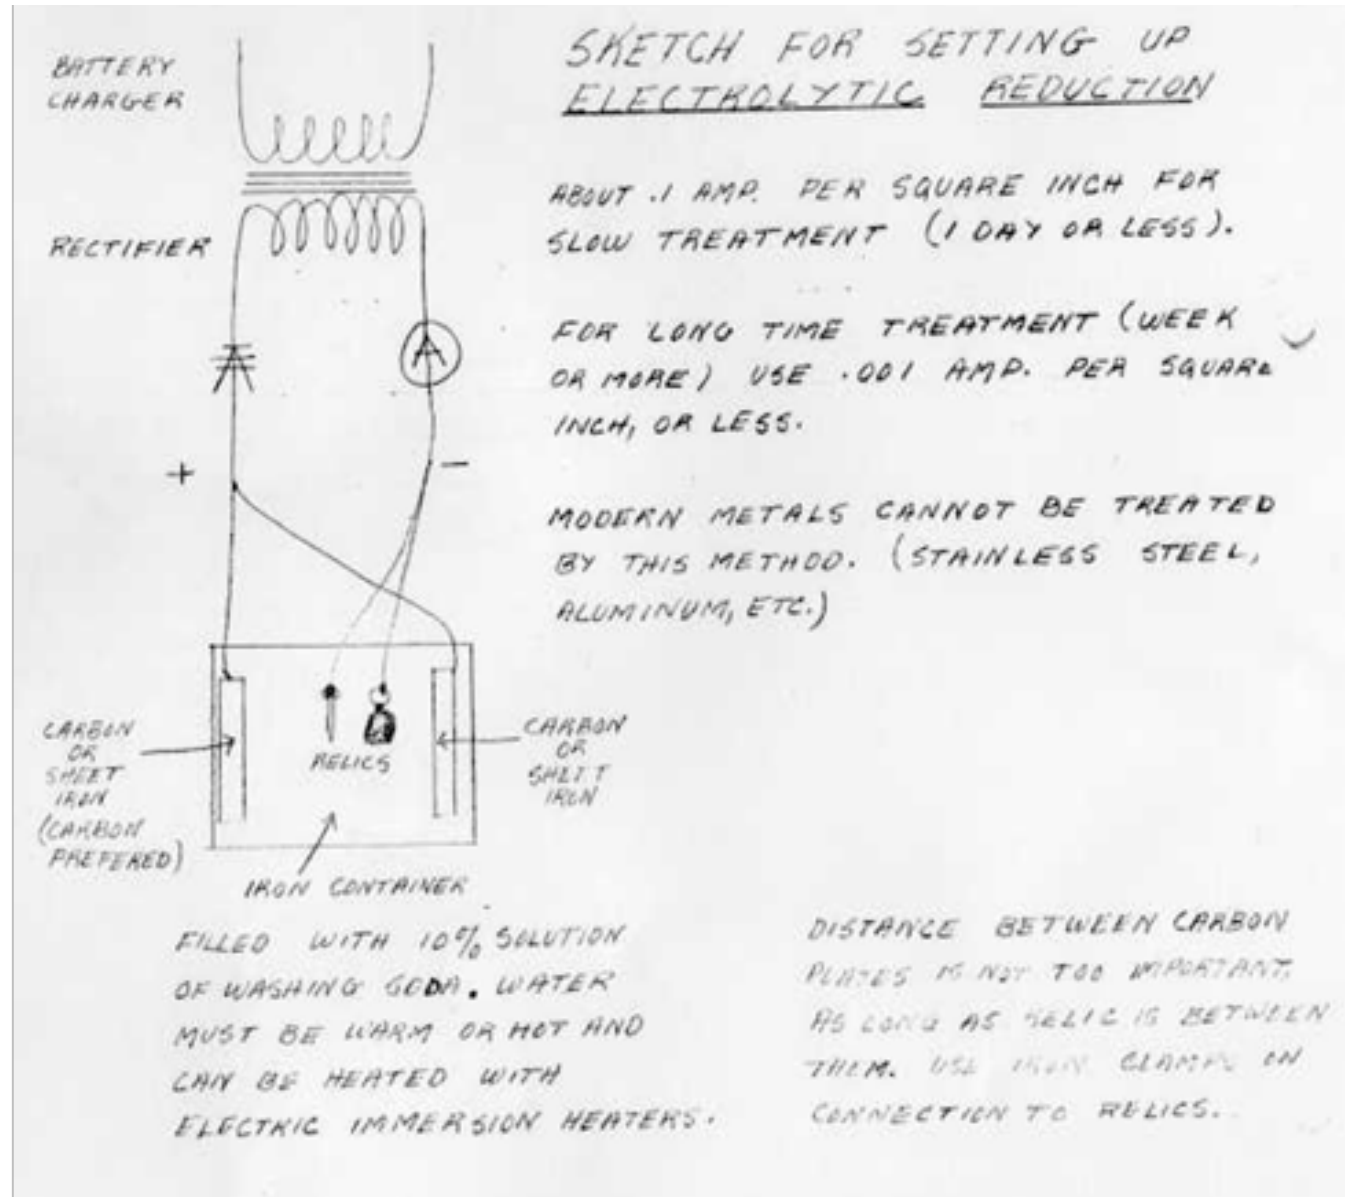 SKETCH FOR SETTING UP
ELECTROLYTIC REDUCTION
BATTERY
CHARGER
RECTIFIER
ABOUT .1 AMP. PER SQUARE INCH FOR
SLOW TREATMENT (1 DAY OR LESS).
FOR LONG TIME TREATMENT (WEEK
OR MORE) USE .001 AMP. PER SQUARE
INCH, OR LESS.
MODERN METALS CANNOT BE TREATED
BY THIS METHOD. (STAINLESS STEEL,
ALUMINUM, ETC.)
A
+
-
CARBON
OR
SHEET
IRON
(CARBON
PREFERED)
RELICS
CARBON
OR
SHEET
IRON
IRON CONTAINER
FILLED WITH 10% SOLUTION
OF WASHING SODA. WATER
MUST BE WARM OR HOT AND
CAN BE HEATED WITH
ELECTRIC IMMERSION HEATERS.
DISTANCE BETWEEN CARBON
PLATES IS NOT TOO IMPORTANT,
AS LONG AS RELIC IS BETWEEN
THEM. USE IRON CLAMPS ON
CONNECTION TO RELICS.